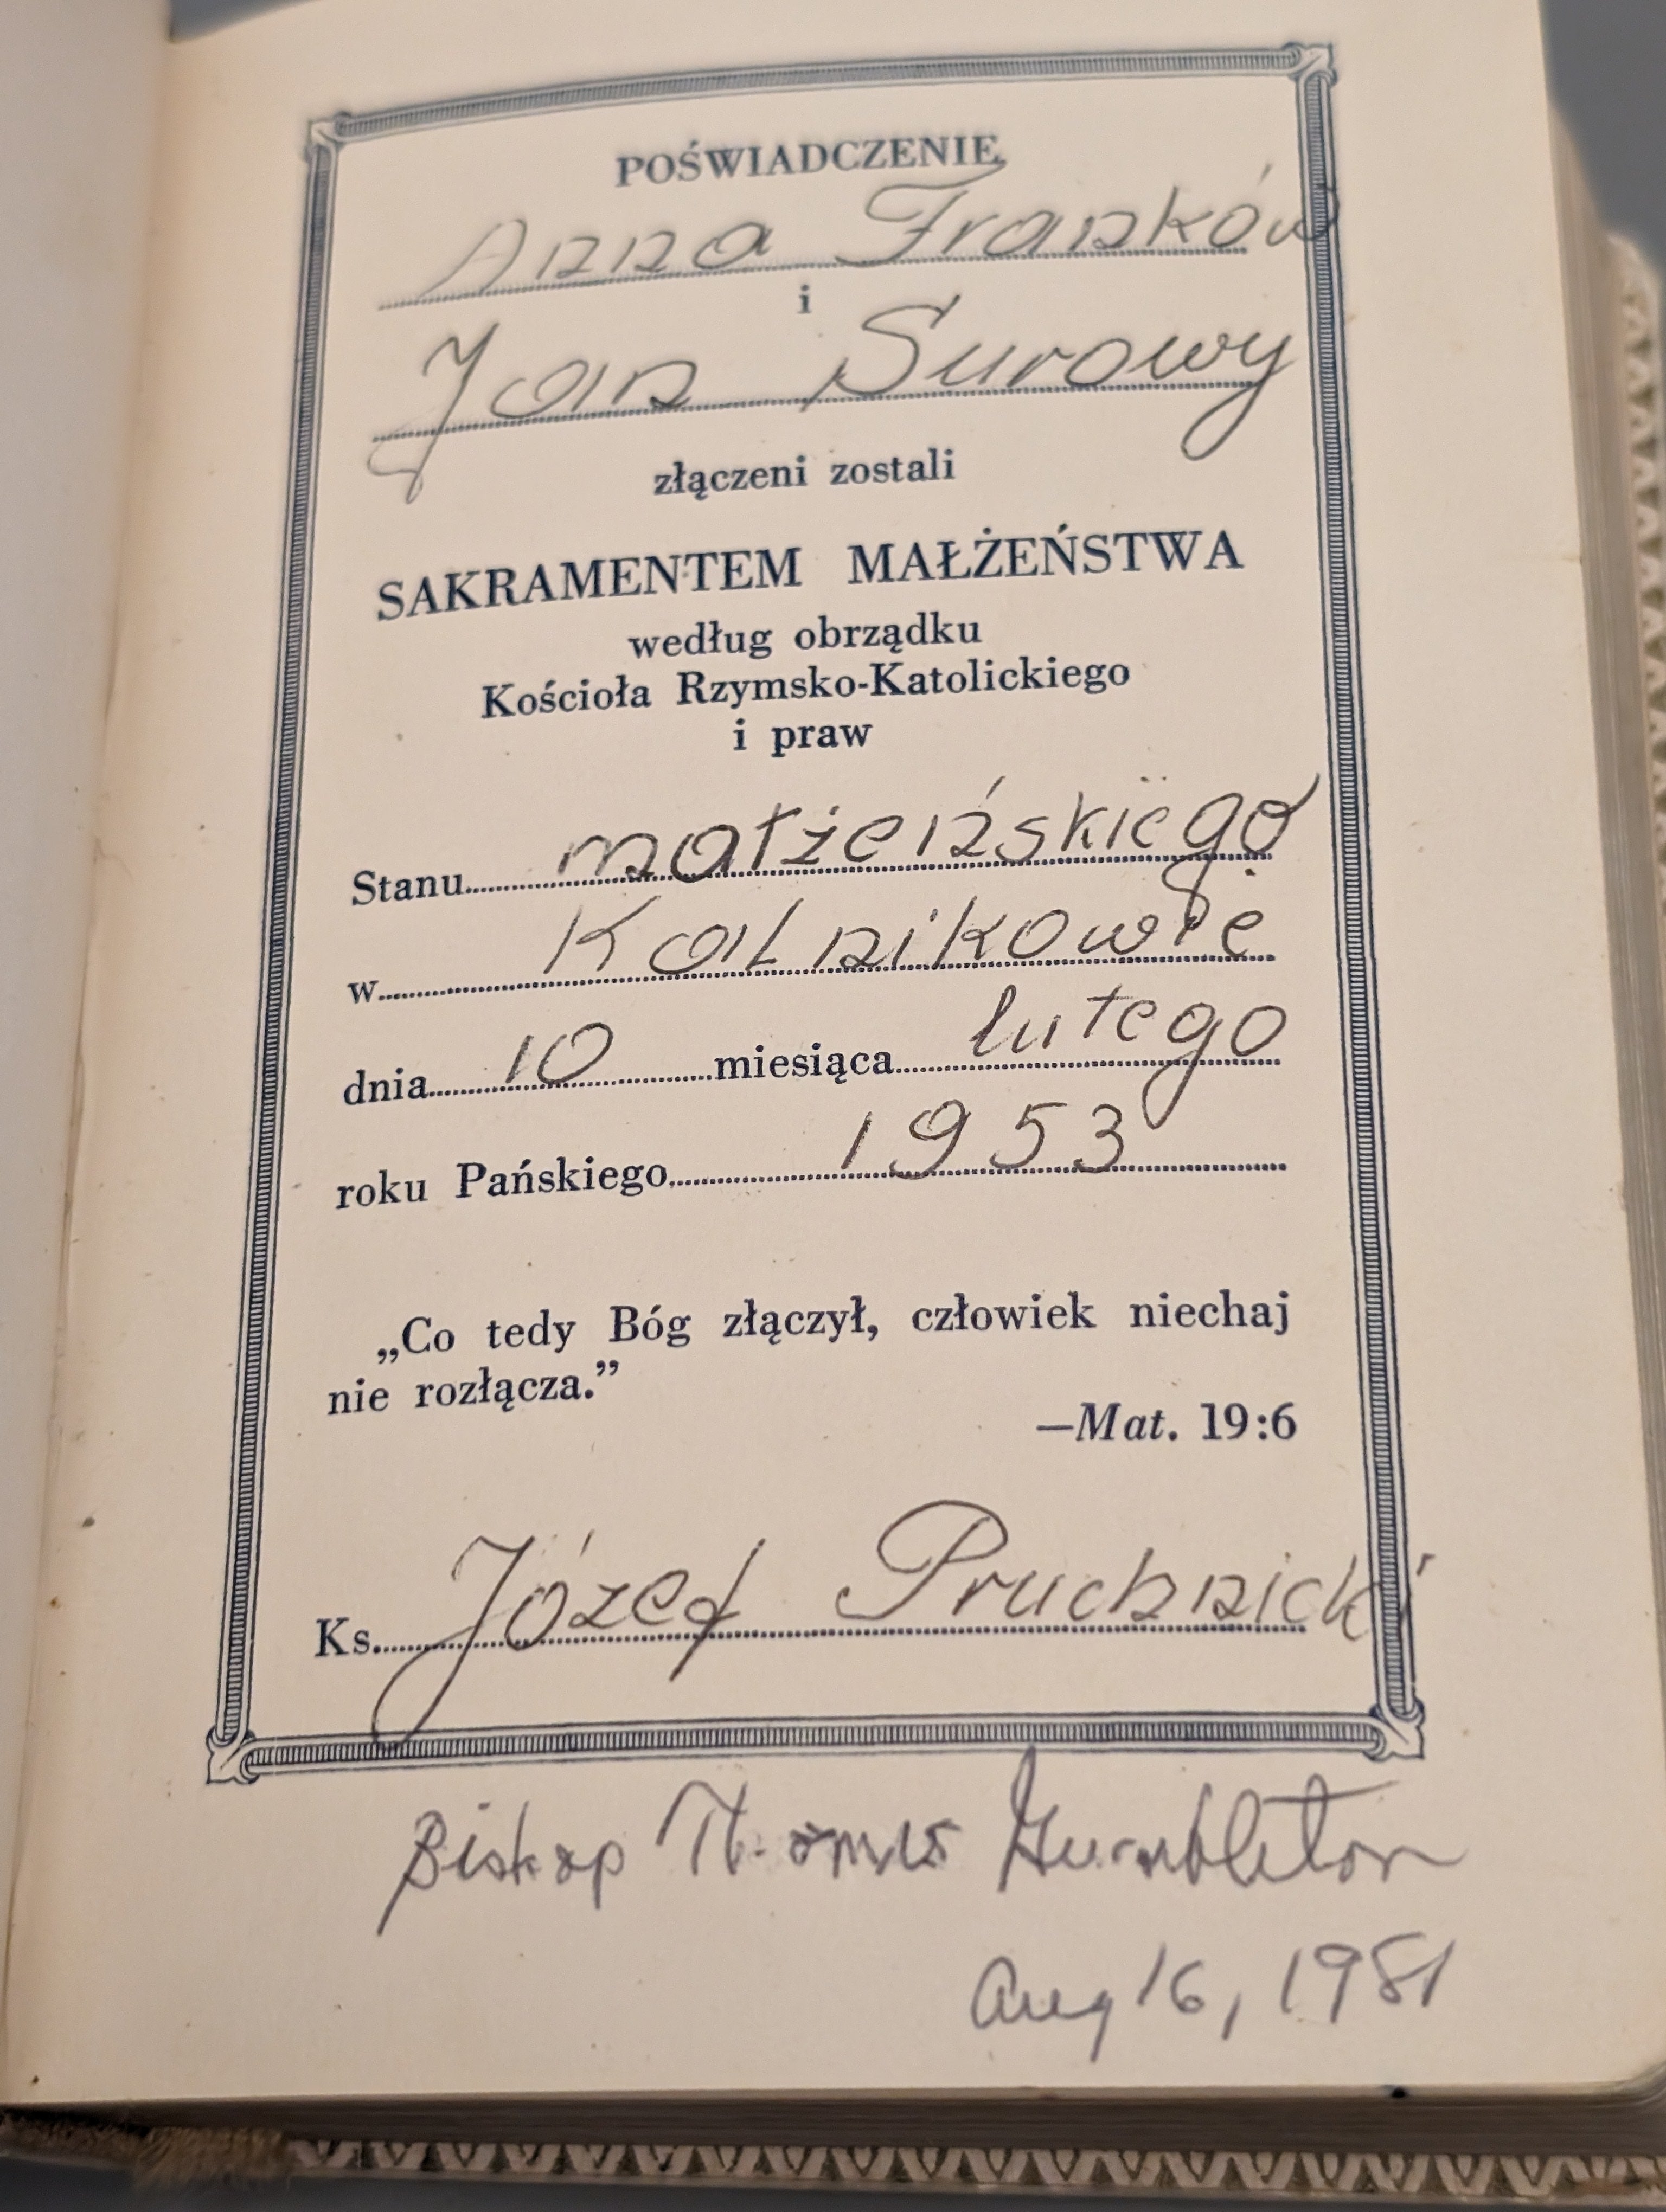 POŚWIADCZENIE
Anna Franków
i
Jan Surowy
złączeni zostali
SAKRAMENTEM MAŁŻEŃSTWA
według obrządku
Kościoła Rzymsko-Katolickiego
i praw
Stanu małżeńskiego
w Kalnikowie
dnia 10 miesiąca lutego
roku Pańskiego 1953
„Co tedy Bóg złączył, człowiek niechaj
nie rozłącza.”
—Mat. 19:6
Ks. Józef Pruchnicki
Biskop Thomas Gumbleton
Aug 16, 1981